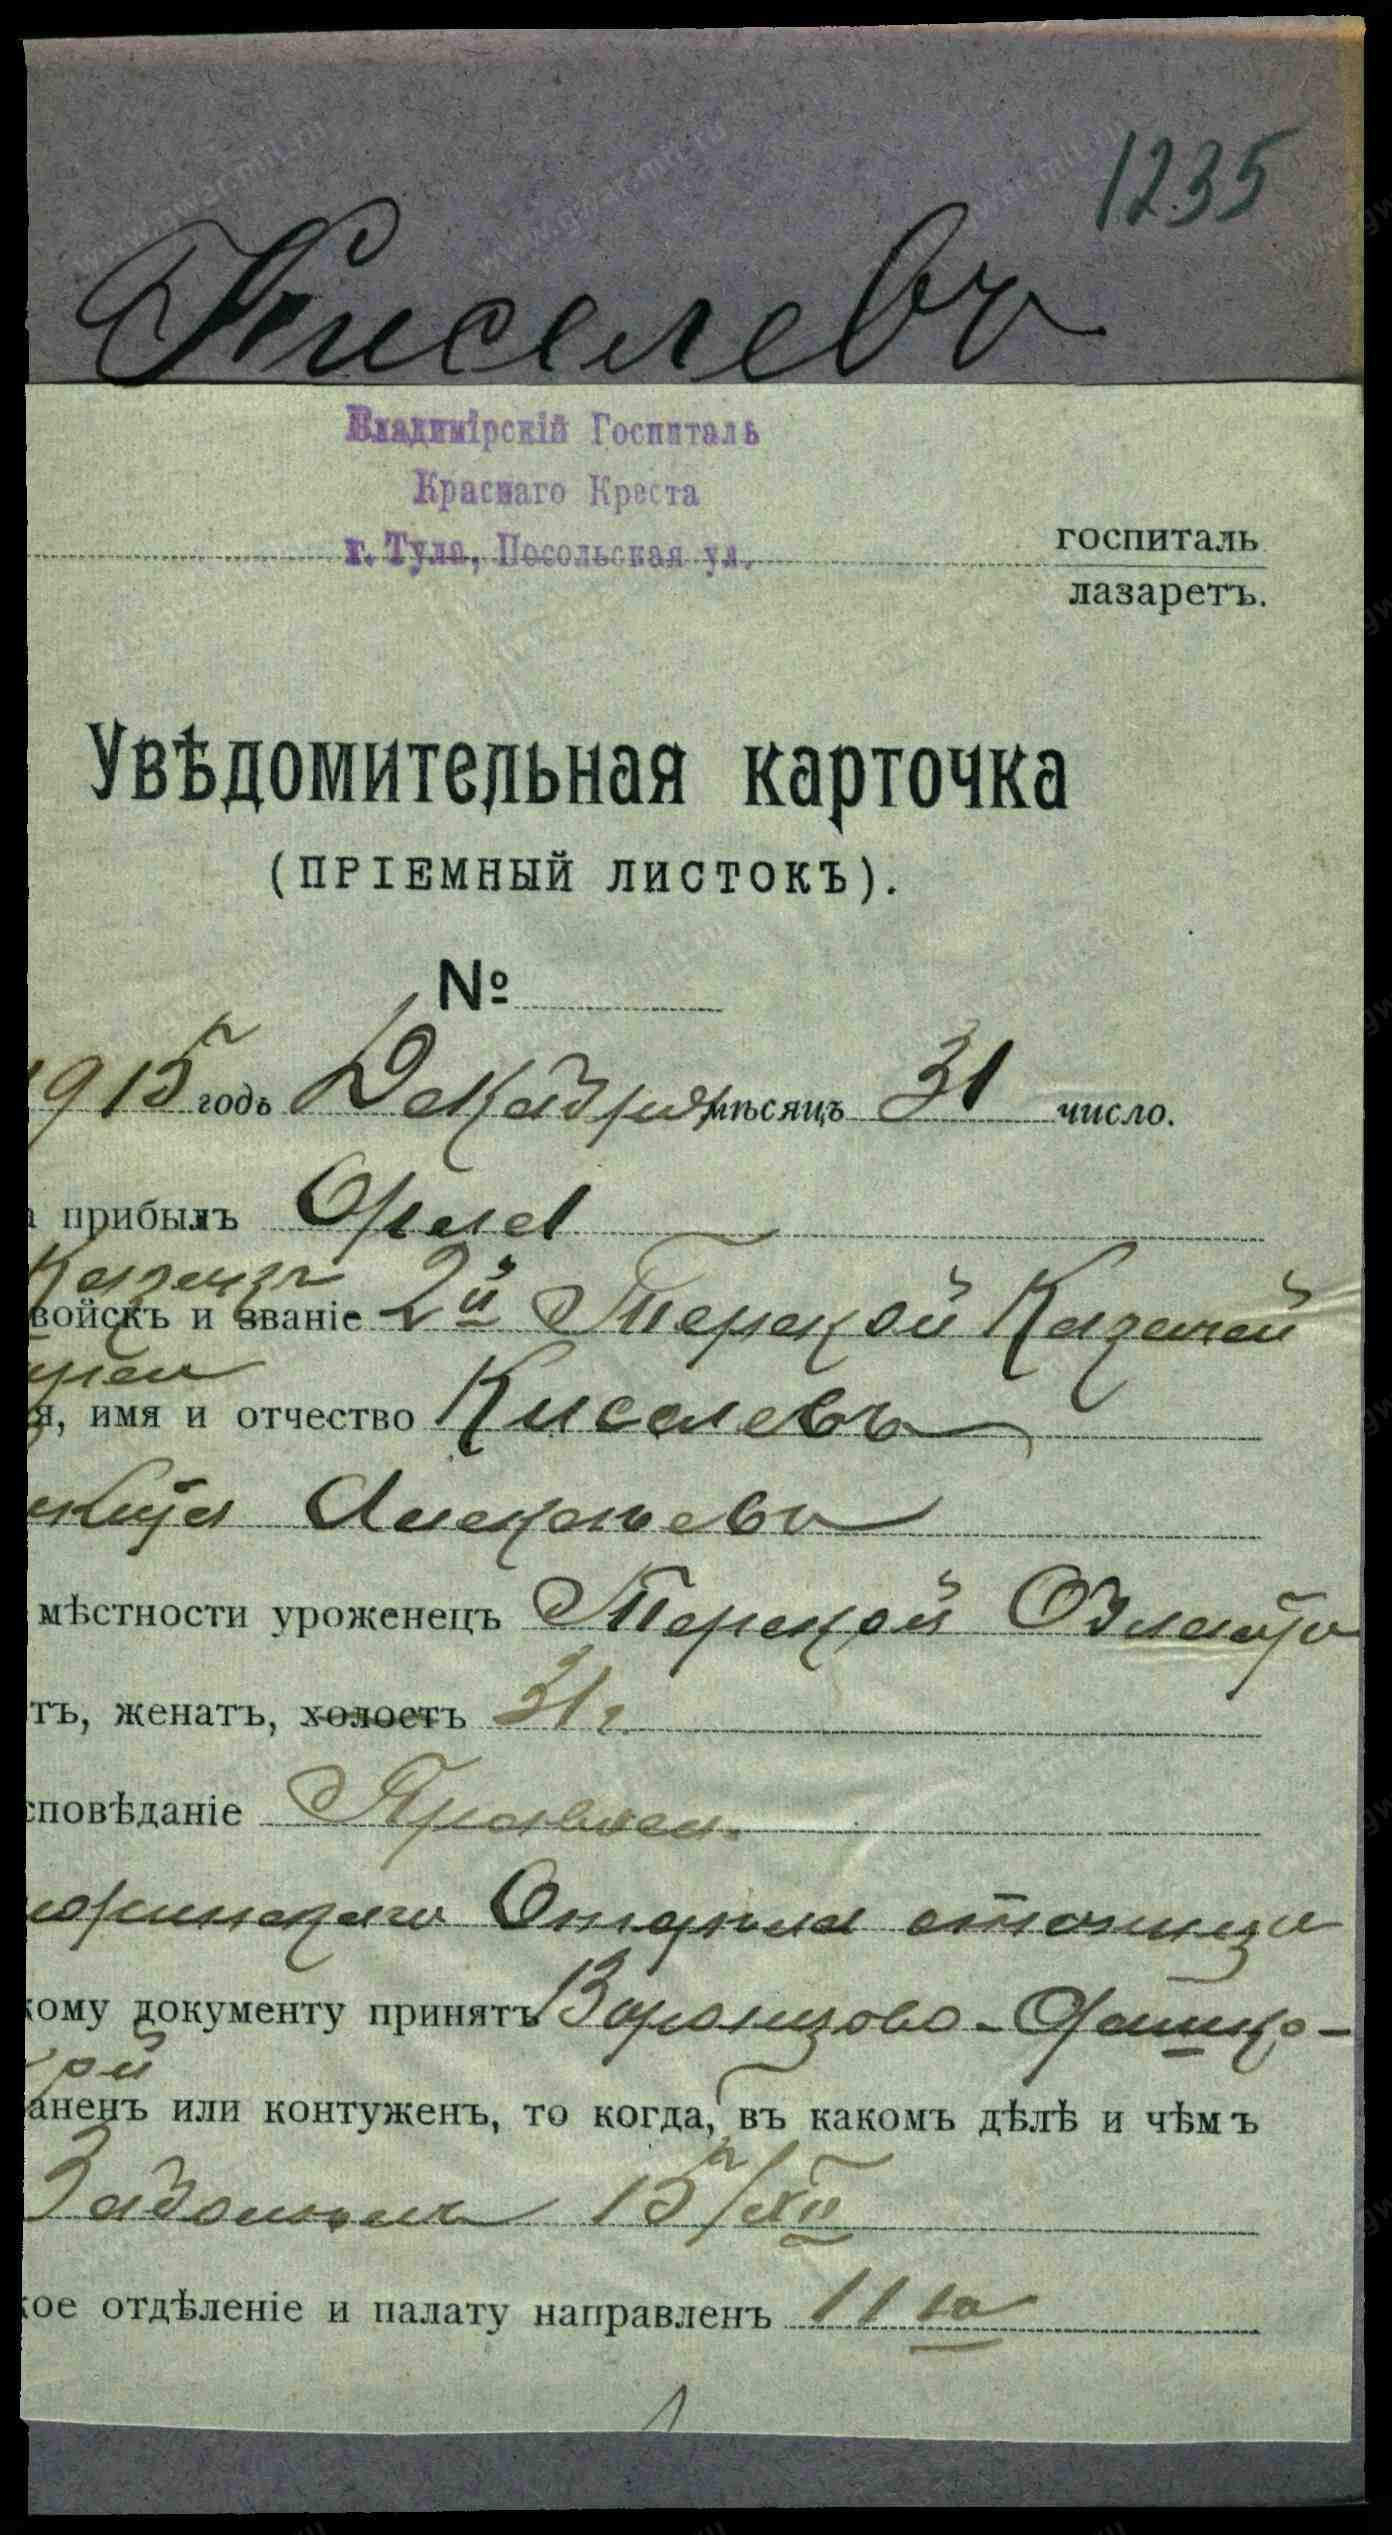 1235
Киселевъ
Владимірскій Госпиталь
Краснаго Креста
г. Тула, Посольская ул.
госпиталь
лазаретъ.
Увѣдомительная карточка
(ПРІЕМНЫЙ ЛИСТОКЪ).
№
1915 годъ Декабря мѣсяцъ 31 число.
прибылъ Орла
Казакъ
войскъ и званіе 2й Терской Казачей
я, имя и отчество Киселевъ
Алексѣевъ
мѣстности уроженецъ Терской Области
тъ, женатъ, холостъ 31 г.
сповѣданіе Правосл.
Отдѣла станица
кому документу принятъ Воронцово-Дашко-
кой
аненъ или контуженъ, то когда, въ какомъ дѣлѣ и чѣмъ
Заболѣлъ 15/XII
кое отдѣленіе и палату направленъ 11